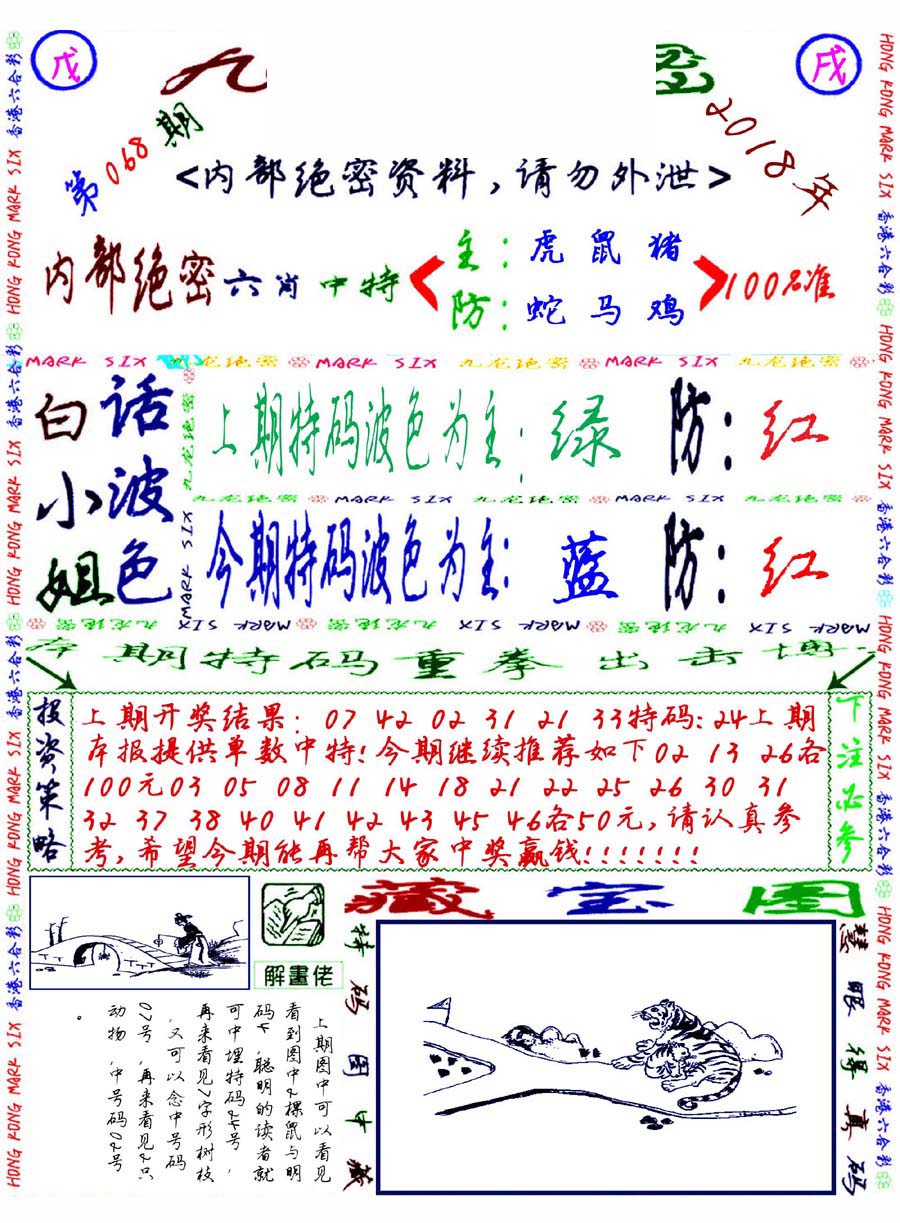 戊
九
密
戌
第068期
2018年
<内部绝密资料，请勿外泄>
内部绝密六肖中特
主：虎鼠猪
防：蛇马鸡
100%准
MARK SIX 九龙绝密 MARK SIX 九龙绝密 MARK SIX 九龙绝密
白话
小波
姐色
上期特码波色为主：绿 防：红
九龙绝密 MARK SIX 九龙绝密 MARK SIX 九龙绝密
今期特码波色为主：蓝 防：红
MARK SIX 九龙绝密 MARK SIX 九龙绝密 MARK SIX 九龙绝密
本期特码重拳出击博
投资策略
上期开奖结果：07 42 02 31 21 33特码：24上期
本报提供单数中特！今期继续推荐如下02 13 26各
100元03 05 08 11 14 18 21 22 25 26 30 31
32 37 38 40 41 42 43 45 46各50元，请认真参
考，希望今期能再帮大家中奖赢钱！！！！！！！
下注必参
藏宝图
解畫佬
上期图中可以看见
看到图中2棵鼠与明
码4，聪明的读者就
可中埋特码24号，
再来看见7字形树枝
，又可以念中号码
07号，再来看见2只
动物，中号码02号
。
特码图中藏
慧眼得真码
HONG KONG MARK SIX 香港六合彩
HONG KONG MARK SIX 香港六合彩